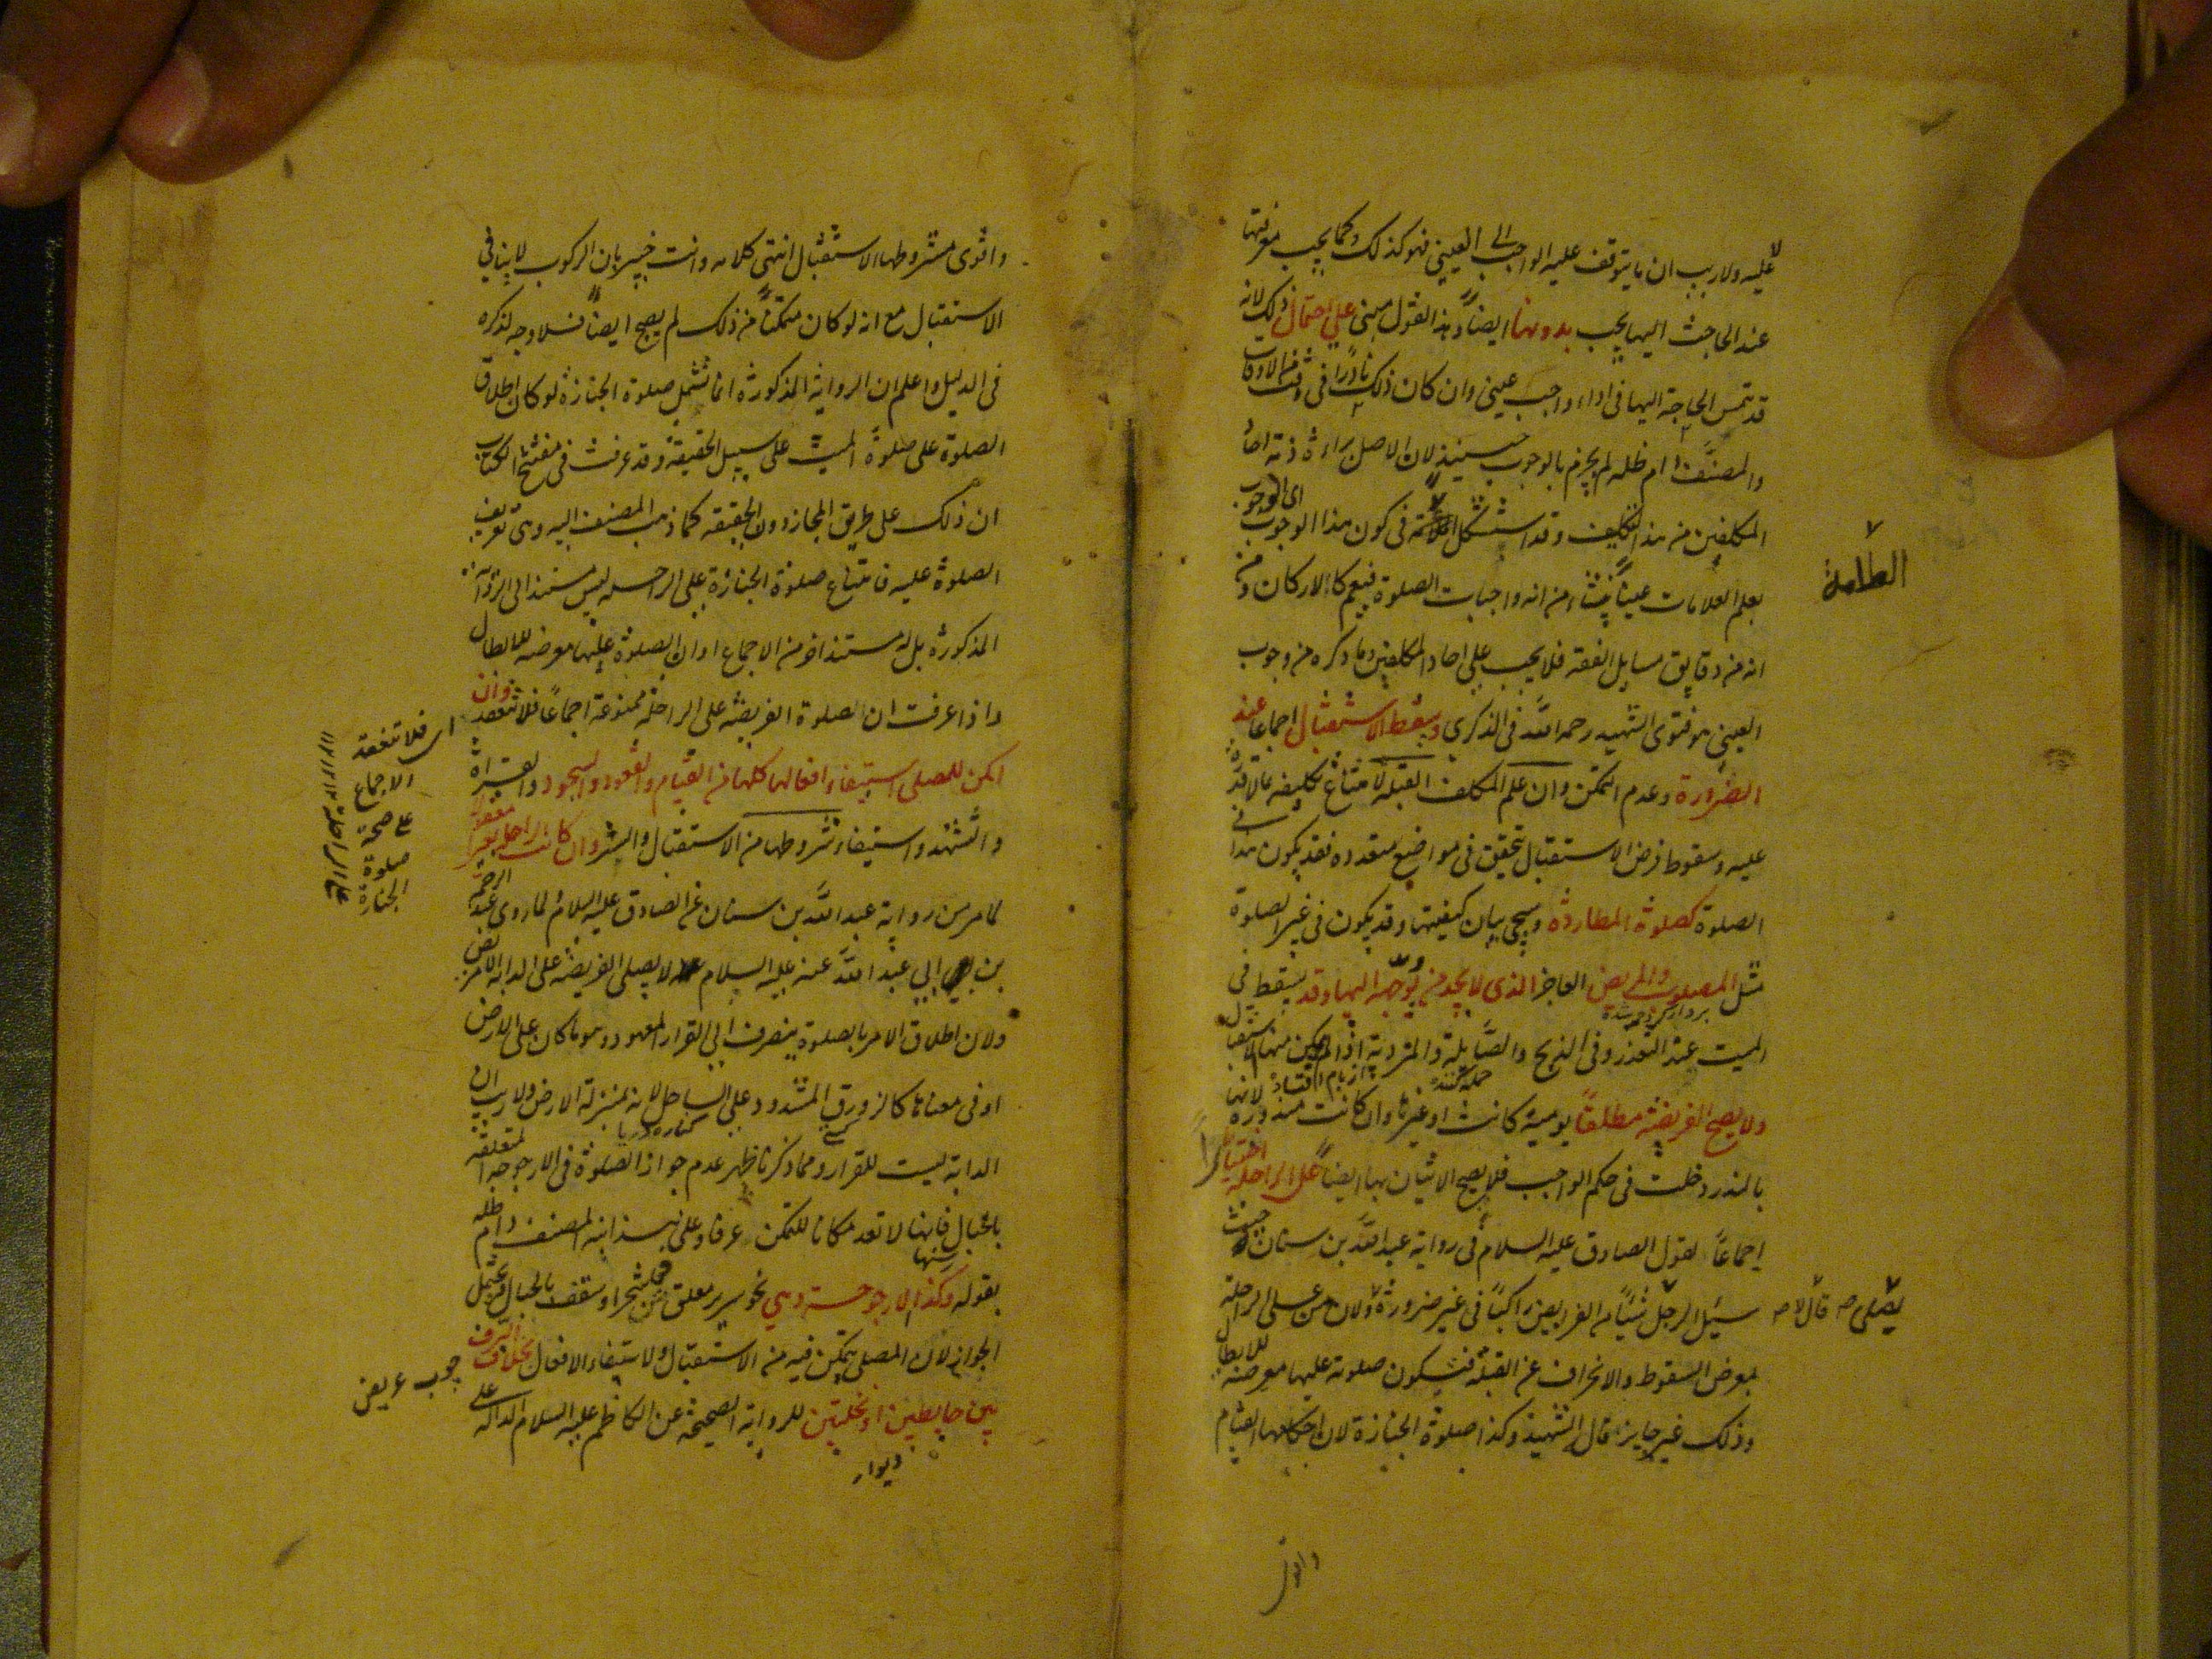 عليه ولا ريب ان ما يتوقف عليه الواجب العيني فهو كذلك وكما يجب معرفتها
عند الحاجة اليها يجب بدونها ايضاً وهذا القول مبني على احتمال ذلك لانه
قد تمس الحاجة اليها في اداء واجب عيني وان كان ذلك نادرًا في وقت من الاوقات
والمصنف دام ظله لم يجزم بالوجوب حينئذ لان الاصل براءة ذمة احاد
المكلفين من هذا التكليف وقد استشكل العلامة في كون هذا الوجوب
اى الوجوب
العلامة
بعلم العلامات عيناً ينشاء من انه واجبات الصلوة فيعم كالاركان ومن
انه من دقايق مسايل الفقه فلا يجب على احاد المكلفين وما ذكره من وجوب
العيني هو فتوى الشهيد رحمه الله في الذكرى ويسقط الاستقبال اجماعاً عند
الضرورة وعدم التمكن وان علم المكلف القبلة لامتناع تكليفه بما لا قدرة
عليه وسقوط فرض الاستقبال يتحقق في مواضع متعدده فقد يكون هذا في
الصلوة كصلوة المطاردة وسيجي بيان كيفيتها وقد يكون في غير الصلوة
مثل المصلوب والمريض العاجز الذي لا يجد من يوجه اليها وقد يسقط في
الميت عند التعذر وفي الذبح والصايلة والمتردية اذا لم يمكن منها الاستقبال
حمله كننده
ولا يصح الفريضة مطلقاً يومية كانت او غيرها وان كانت منذورة لانها
بالنذر دخلت في حكم الواجب فلا يصح الاتيان بها ايضاً على الراحلة اختياراً
اجماعاً لقول الصادق عليه السلام في رواية عبد الله بن سنان حيث
سئل الرجل شيئاً من الفرايض راكباً في غير ضرورة ولان من على الراحلة
يصلى صح قال لا صح
بمعرض السقوط والانحراف عن القبلة فيكون صلوته عليها معرضة للابطال
وذلك غير جايز قال الشهيد وكذا صلوة الجنازة لان احكامها القيام
واقوى
واقوى شروطها الاستقبال انتهى كلامه وانت خبير بان الركوب لا ينافي
الاستقبال مع انه لو كان متمكناً من ذلك لم يصح ايضاً فلا وجه لذكره
في الدليل واعلم ان الرواية المذكورة انما تشمل صلوة الجنازة لو كان اطلاق
الصلوة على صلوة الميت على سبيل الحقيقة وقد عرفت في مفتتح الكتاب
ان ذلك على طريق المجاز دون الحقيقة كما ذهب المصنف اليه وفي تعريف
الصلوة عليه فامتناع صلوة الجنازة على الراحلة ليس مستندا الى الرواية
المذكورة بل له مستند اخر من الاجماع او ان الصلوة عليها معرضه للابطال
واذا عرفت ان الصلوة الفريضة على الراحلة ممنوعة اجماعاً فلا تنعقد وان
اى فلا تنعقد
الاجماع
على صحة
صلوة
الجنازة
امكن للمصلى استيفاء افعالها كلها من القيام والقعود والسجود والقراءة
والتشهد واستيفاء شروطها من الاستقبال والستر وان كانت الراحلة بعيرا معقولا
لما مر من رواية عبد الله بن سنان عن الصادق عليه السلام لما روى عبد الرحمن
بن ابي عبد الله عنه عليه السلام لا يصلى الفريضة على الدابة الا مريض
ولان اطلاق الامر بالصلوة ينصرف الى القرار المعهود وهو ما كان على الارض
او في معناها كالزورق المشدود على الساحل لانه بمنزلة الارض ولا ريب ان
كناره دريا
الدابة ليست للقرار ومما ذكرنا ظهر عدم جواز الصلوة في الارجوحة المتعلقة
بالحبال فانها لا تعد مكانا للتمكن عرفا وعلى هذا نبه المصنف دام ظله
بقوله وكذا الارجوحة وهي نحو سرير معلق من شجر او سقف بالحبال فيحتمل
الجواز لان المصلى يتمكن فيه من الاستقبال ولاستيفاء الافعال بخلاف الرف
چوب عريض
بين حايطين او نخلتين للرواية الصحيحة عن الكاظم عليه السلام الدالة على
ديوار